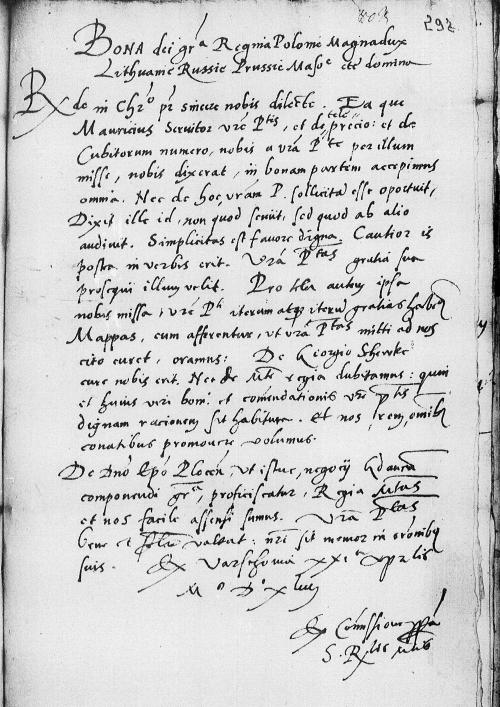 292
BONA dei gr͠a Regina Polonie Magnadux
Lithuanie Russie Prussie Maso͞e etc domina
Rx͞de in Chr͞o pr͞ sincere nobis dilecte. Ea que
Mauricius Servitor vr͠e P͞tis, et de tele precio: et de
Cubitorum numero, nobis a vr͠a P͞te per illum
misse, nobis dixerat, in bonam partem accepimus
omnia. Nec de hoc, vr͠am P. sollicitā esse oportuit,
Dixit ille id, non quod scivit, sed quod ab alio
audivit. Simplicitas est favore digna. Cautior is
postea in verbis erit. Vr͠a P͞tas gratia sua
prosequi illum velit. Pro tela autem ipsa
nobis missa, vr͠e P͞ti iterum atq iterū gratias habem
Mappas, cum afferentur, ut vr͠a P͞tas mitti ad nos
cito curet, oramus: De Giorgio Shewke
cure nobis erit. Nec de M͞te regia dubitamus: quin
et huius viri boni: et comendationis vr͠e P͞tis
dignam racionem sit habitura. Et nos rem, omīb
conatibus promovere volumus.
De Dn͞o Ep͞o Plocen͞, ut istuc, negocij Gdanen͞
componendi gr͞a, proficiscatur, Regia M͞tas
et nos facile assensi sumus. Vr͠a P͞tas
bene et valeat: nr͞i sit memor in or͞onibus
suis. Ex Varschovia xxi͞a Aprilis
M͞o D͞o xlii͞j
Ex Com͞issione pp͞a
S. R͞lis M͞tis